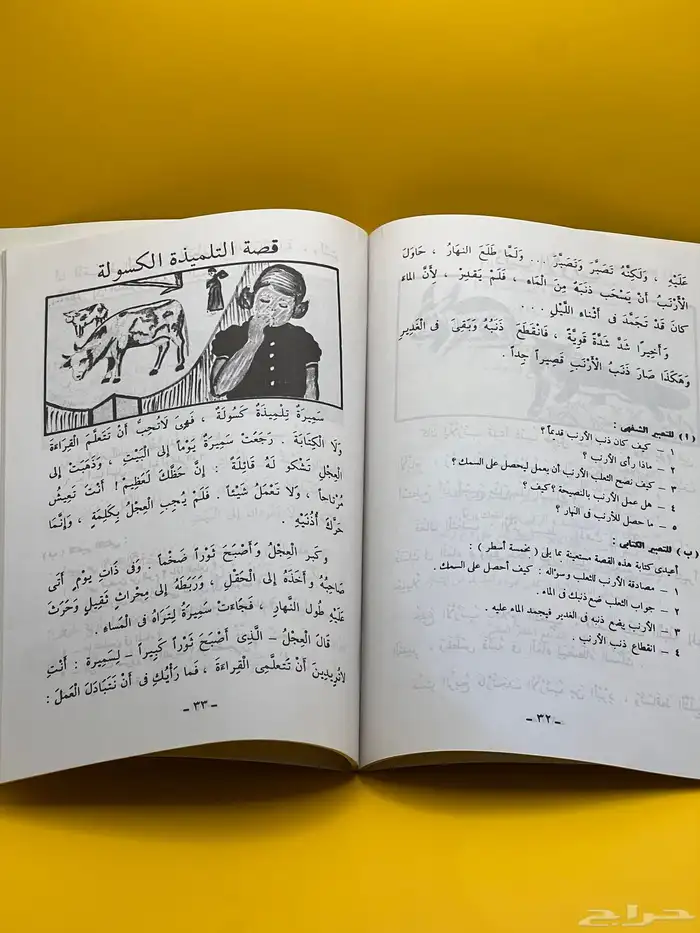 عَلَيْهِ ، وَلَكِنَّهُ تَصَبَّرَ وَتَصَبَّرَ ... وَلَمَّا طَلَعَ النهَارُ ، حَاوَلَ
الْأَرْنَبُ أَنْ يَسْحَبَ ذَنَبَهُ مِنَ الْمَاءِ ، فَلَمْ يَقْدِرْ ، لِأَنَّ الماء
كانَ قَدْ تَجَمَّدَ فى أثْناءِ اللَّيْلِ ...
وَأَخِيراً شَدَّ شَدَّةً قَوِيَّةً ، فَانْقَطَعَ ذَنَبُهُ وَبَقِىَ فى الْغَدِيرِ
وَهَكَذَا صَارَ ذَنَبُ الْأَرْنَبِ قَصِيراً جِداً .
(١) للتعبير الشفهى :
١ – كيف كان ذنب الأرنب قديماً ؟
٢ – ماذا رأى الأرنب ؟
٣ – كيف نصح الثعلب الأرنب أن يعمل ليحصل على السمك ؟
٤ – هل عمل الأرنب بالنصيحة ؟ كيف ؟
٥ – ما حصل للأرنب فى النهار ؟
(ب) للتعبير الكتابى :
أعيدى كتابة هذه القصة مستعينة بما يلى ( بخمسة أسطر ) :
١ – مصادقة الأرنب للثعلب وسؤاله : كيف أحصل على السمك .
٢ – جواب الثعلب ضع ذنبك فى الماء .
٣ – الأرنب يضع ذنبه فى الغدير فيجمد الماء عليه .
٤ – انقطاع ذنب الأرنب .
– ٣٢ –
قصة التلميذة الكسولة
سَمِيرَةُ تِلْمِيذَةٌ كَسُولَةٌ ، فَهِىَ لَاتُحِبُّ أَنْ تَتَعَلَّمَ الْقِرَاءَةَ
وَلَا الْكِتَابَةَ . رَجَعَتْ سَمِيرَةُ يَوْماً إِلَى الْبَيْتِ ، وَذَهَبَتْ إِلى
الْعِجْلِ تَشْكُو لَهُ قَائِلَةً : إِنَّ حَظَّكَ لَعَظِيمٌ ! أَنْتَ تَعِيشُ
مُرْتاحاً ، وَلَا تَعْمَلُ شَيْئاً . فَلَمْ يُجِبِ الْعِجْلُ بِكَلِمَةٍ ، وَإِنَّمَا
حَرَّكَ أُذُنَيْهِ .
وكبر الْعِجْلُ وَأَصْبَحَ ثَوْراً ضَخْماً . وَفى ذَاتِ يَوْمٍ أَتَى
صَاحِبُهُ وَأَخَذَهُ إِلى الْحَقْلِ ، وَرَبَطَهُ إِلى مِحْرَاثٍ ثَقِيلٍ وَحَرَثَ
عَلَيْهِ طُولَ النَّهَارِ ، فَجَاءَتْ سَمِيرَةُ لِتَرَاهُ فى الْمَسَاءِ .
قَالَ الْعِجْلُ – الَّذِى أَصْبَحَ ثَوْراً كَبِيراً – لِسَمِيرَةَ : أَنْتِ
لاتُرِيدِينَ أَنْ تَتَعلَّمِى الْقِرَاءَةَ ، فَما رَأْيُكِ فى أَنْ نَتَبَادَلَ الْعَمَلَ :
– ٣٣ –
حراج